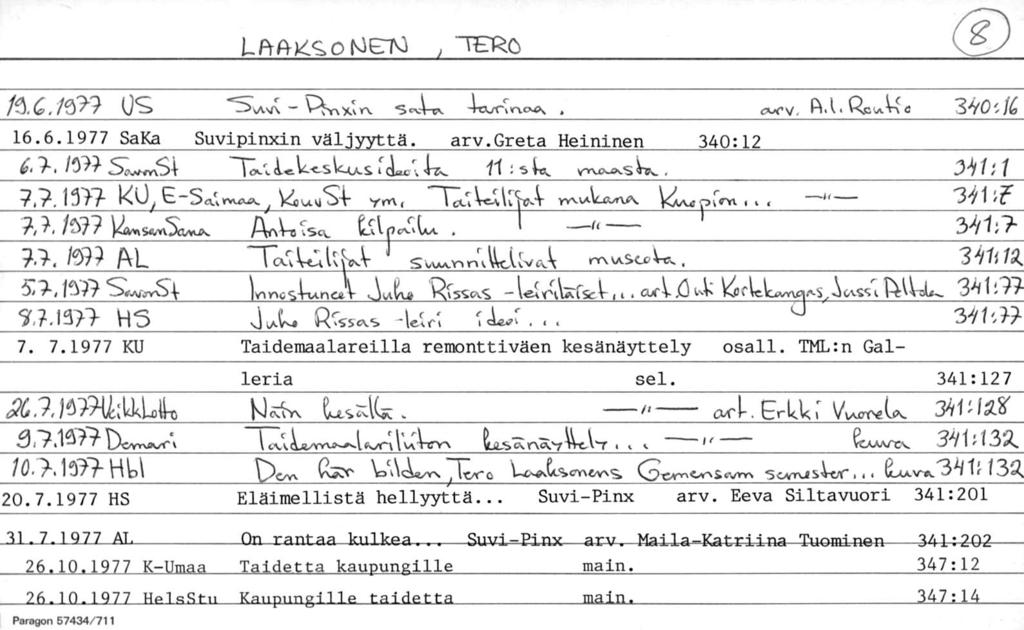 LAAKSONEN , TERO 8
19.6.1977 US Suvi-Pinxin sata tarinaa. arv. A.I. Routio 340:16
16.6.1977 SaKa Suvipinxin väljyyttä. arv.Greta Heininen 340:12
6.7.1977 SavonSt Taidekeskusideoita 11:sta maasta. 341:1
7.7.1977 KU, E-Saimaa, KouvSt ym, Taiteilijat mukana Kuopion... —"— 341:7
7.7.1977 KansanSana Antoisa kilpailu. —"— 341:7
7.7.1977 AL Taiteilijat suunnittelivat museota. 341:12
5.7.1977 SavonSt Innostuneet Juho Rissas -leiriläiset... art. Outi Kortekangas, Jussi Peltola 341:77
8.7.1977 HS Juho Rissas -leiri ideoi... 341:77
7. 7.1977 KU Taidemaalareilla remonttiväen kesänäyttely osall. TML:n Gal-
leria sel. 341:127
26.7.1977 VeikkLotto Näin kesällä. —"— art. Erkki Vuorela 341:128
9.7.1977 Demari Taidemaalariliiton kesänäyttely... —"— kuva 341:132
10.7.1977 Hbl Den här bilden, Tero Laaksonens Gemensam semester... kuva 341:132
20.7.1977 HS Eläimellistä hellyyttä... Suvi-Pinx arv. Eeva Siltavuori 341:201
31.7.1977 AL On rantaa kulkea... Suvi-Pinx arv. Maila-Katriina Tuominen 341:202
26.10.1977 K-Umaa Taidetta kaupungille main. 347:12
26.10.1977 HelsStu Kaupungille taidetta main. 347:14
Paragon 57434/711